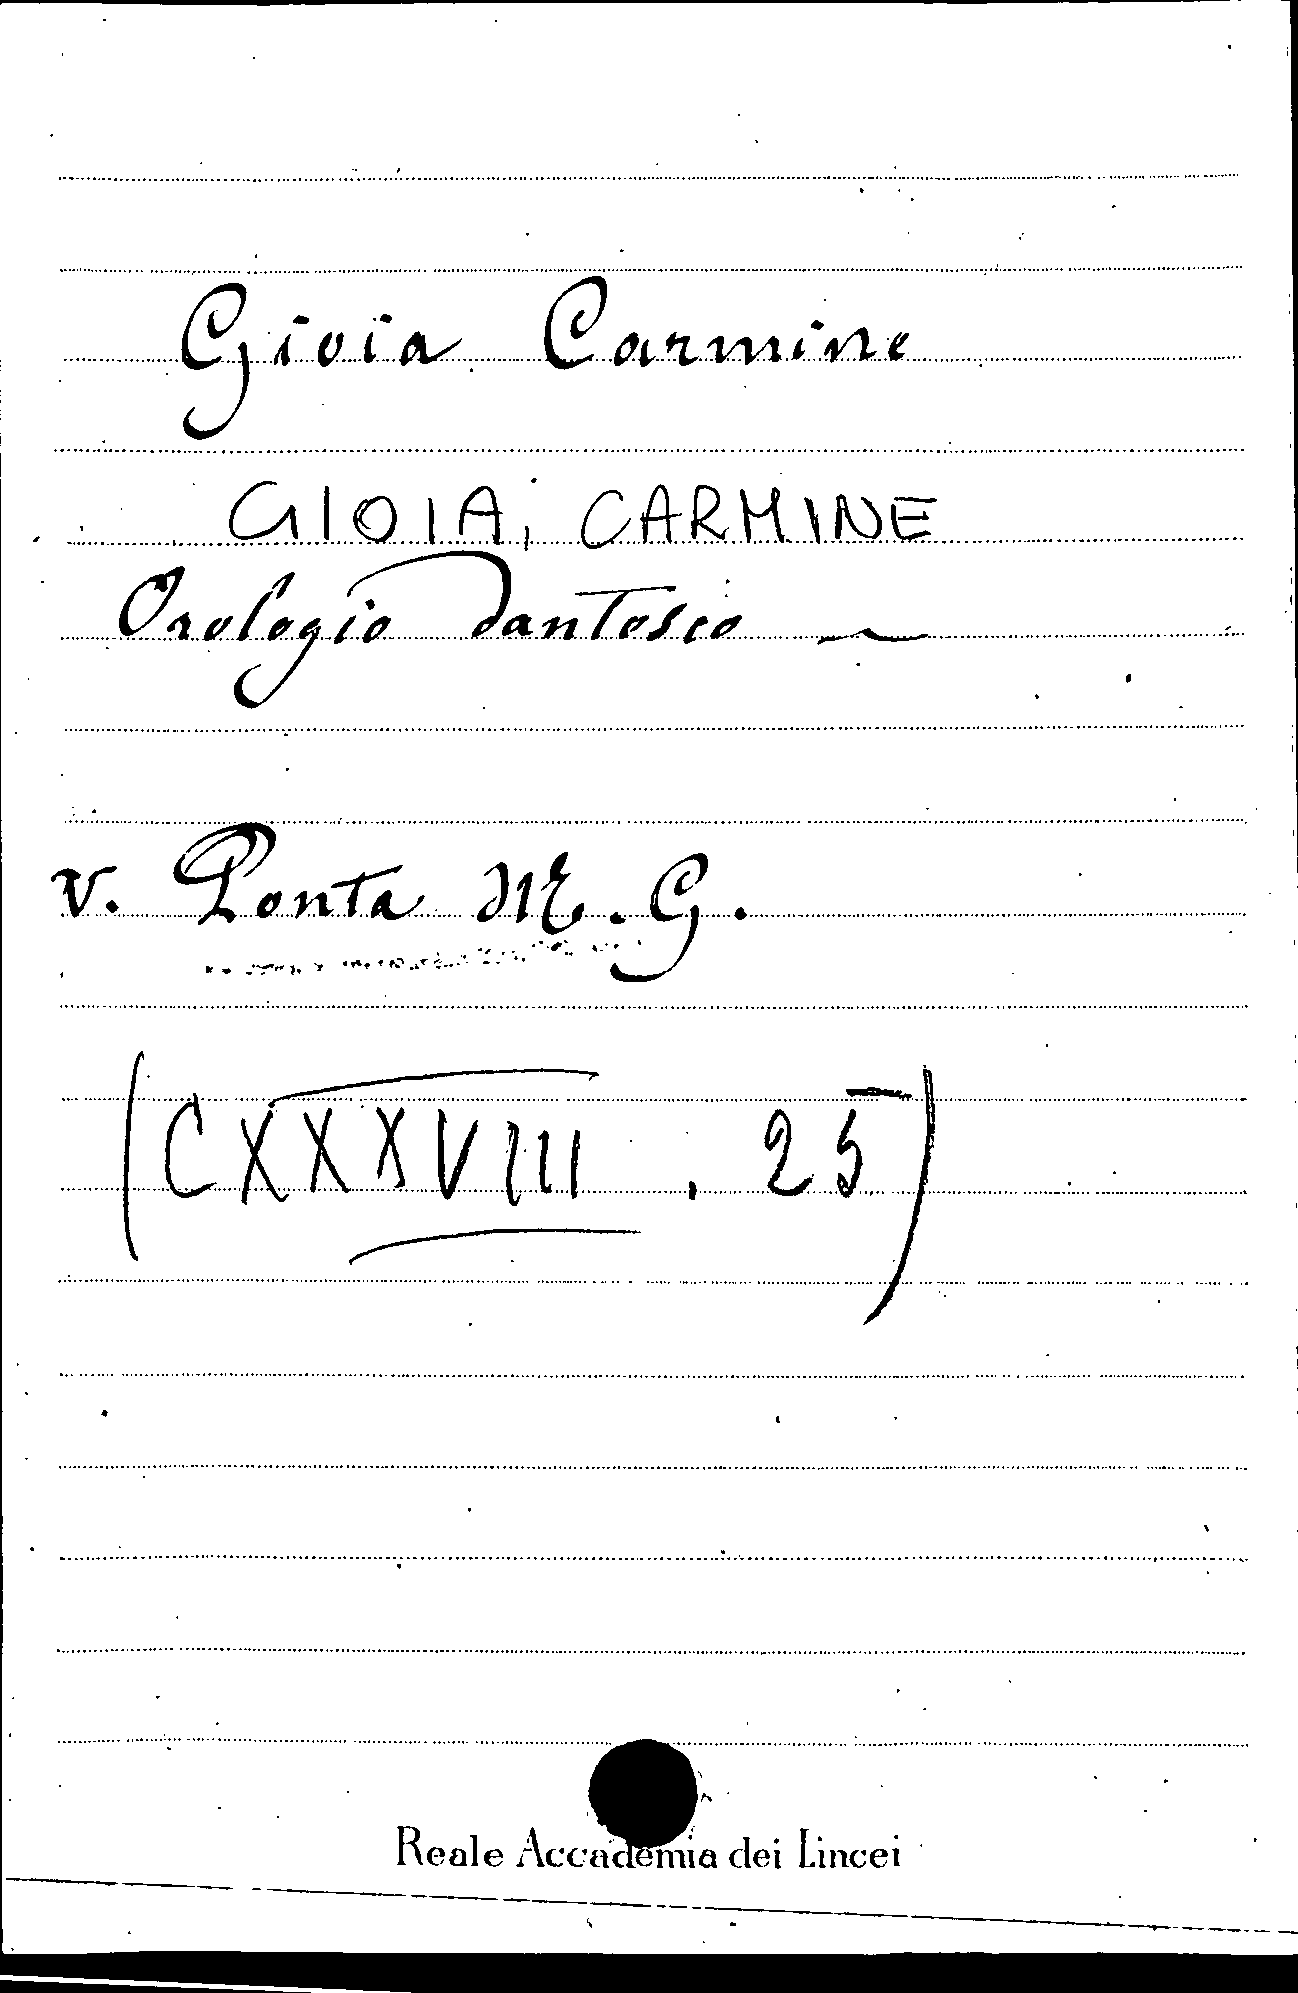 Gioia Carmine
GIOIA, CARMINE
Orologio dantosco
v. Ponta M. G.
(CXXXVIII . 25)
Reale Accademia dei Lincei